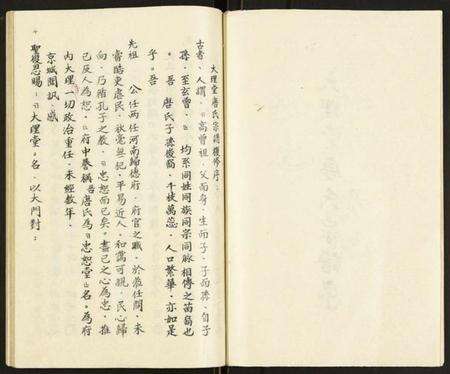 大理堂唐氏宗譜複修序：
古者、人謂、曰高曾祖、父而身、生而子、子而孫、自子
孫、至玄曾、曰 均系同姓同族同宗同脈相傳之苗裔也
、吾 唐氏子孫發裔、千枝萬蕊、人口繁華、亦如是
乎。吾
先祖 公任两任河南歸德府、府官之職、於茲任間、未
嘗酷吏虐民、秋毫無犯、平易近人、和藹可親、民心歸
向、乃踏孔子之教、曰忠恕而已矣、盡己之心為忠、推
己及人為恕、曰府中譽稱吾唐氏為曰忠恕堂曰名、為府
內大理一切政治重任、未經数年、
京城聞訊、感
聖復恩賜、曰大理堂曰名、以大門對：